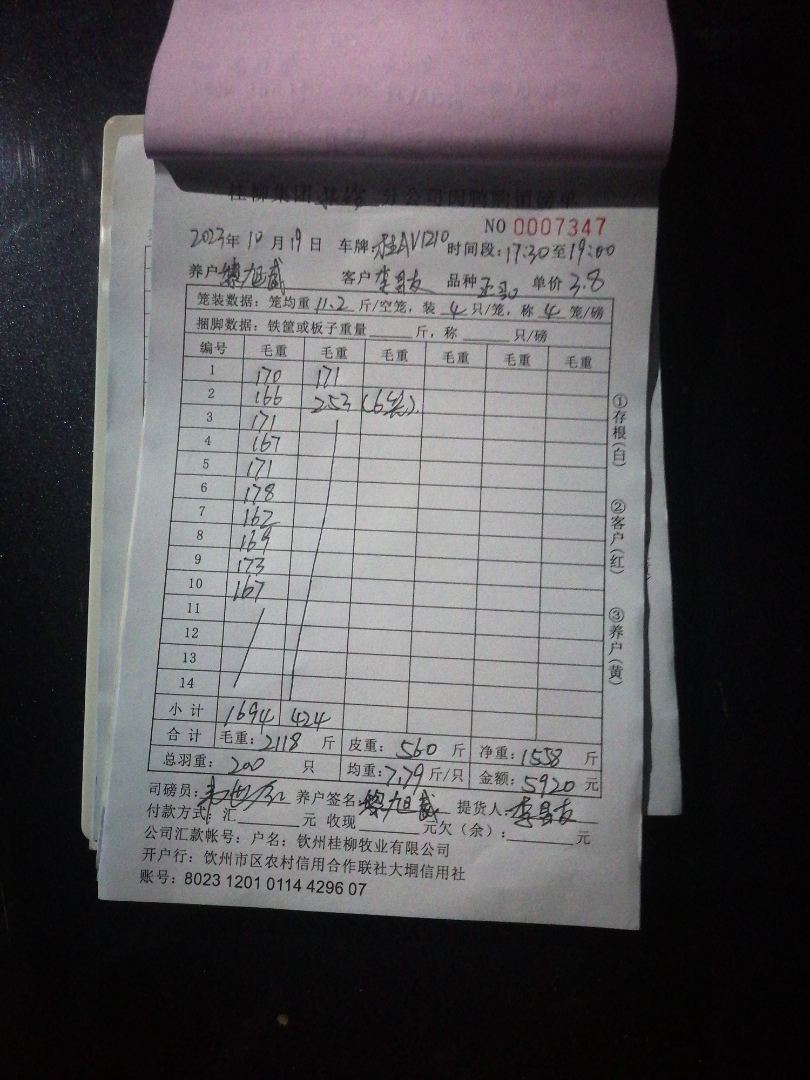 桂柳集团 分公司肉鸭购销磅单
NO 0007347
2023年 10月 19日 车牌 桂AV1210 时间段: 17:30至19:00
养户 黎旭 客户 李昌友 品种 单价 3.8
笼装数据: 笼均重 11.2 斤/空笼, 装 4 只/笼, 称 4 笼/磅
捆脚数据: 铁筐或板子重量______斤, 称______只/磅
编号 毛重 毛重 毛重 毛重 毛重 毛重
1 170 171
2 166 253 (6笼).
3 171
4 167
5 171
6 178
7 162
8 169
9 173
10 167
11
12
13
14
小计 1694 424
合计 毛重: 2118 斤 皮重: 560 斤 净重: 1558 斤
总羽重: 200 只 均重: 7.79 斤/只 金额: 5920 元
司磅员: 养户签名: 黎旭 提货人: 李昌友
付款方式: 汇______元 收现______元欠(余): ______元
公司汇款帐号: 户名: 钦州桂柳牧业有限公司
开户行: 钦州市区农村信用合作联社大垌信用社
账号: 8023 1201 0114 4296 07
①存根(白)
②客户(红)
③养户(黄)